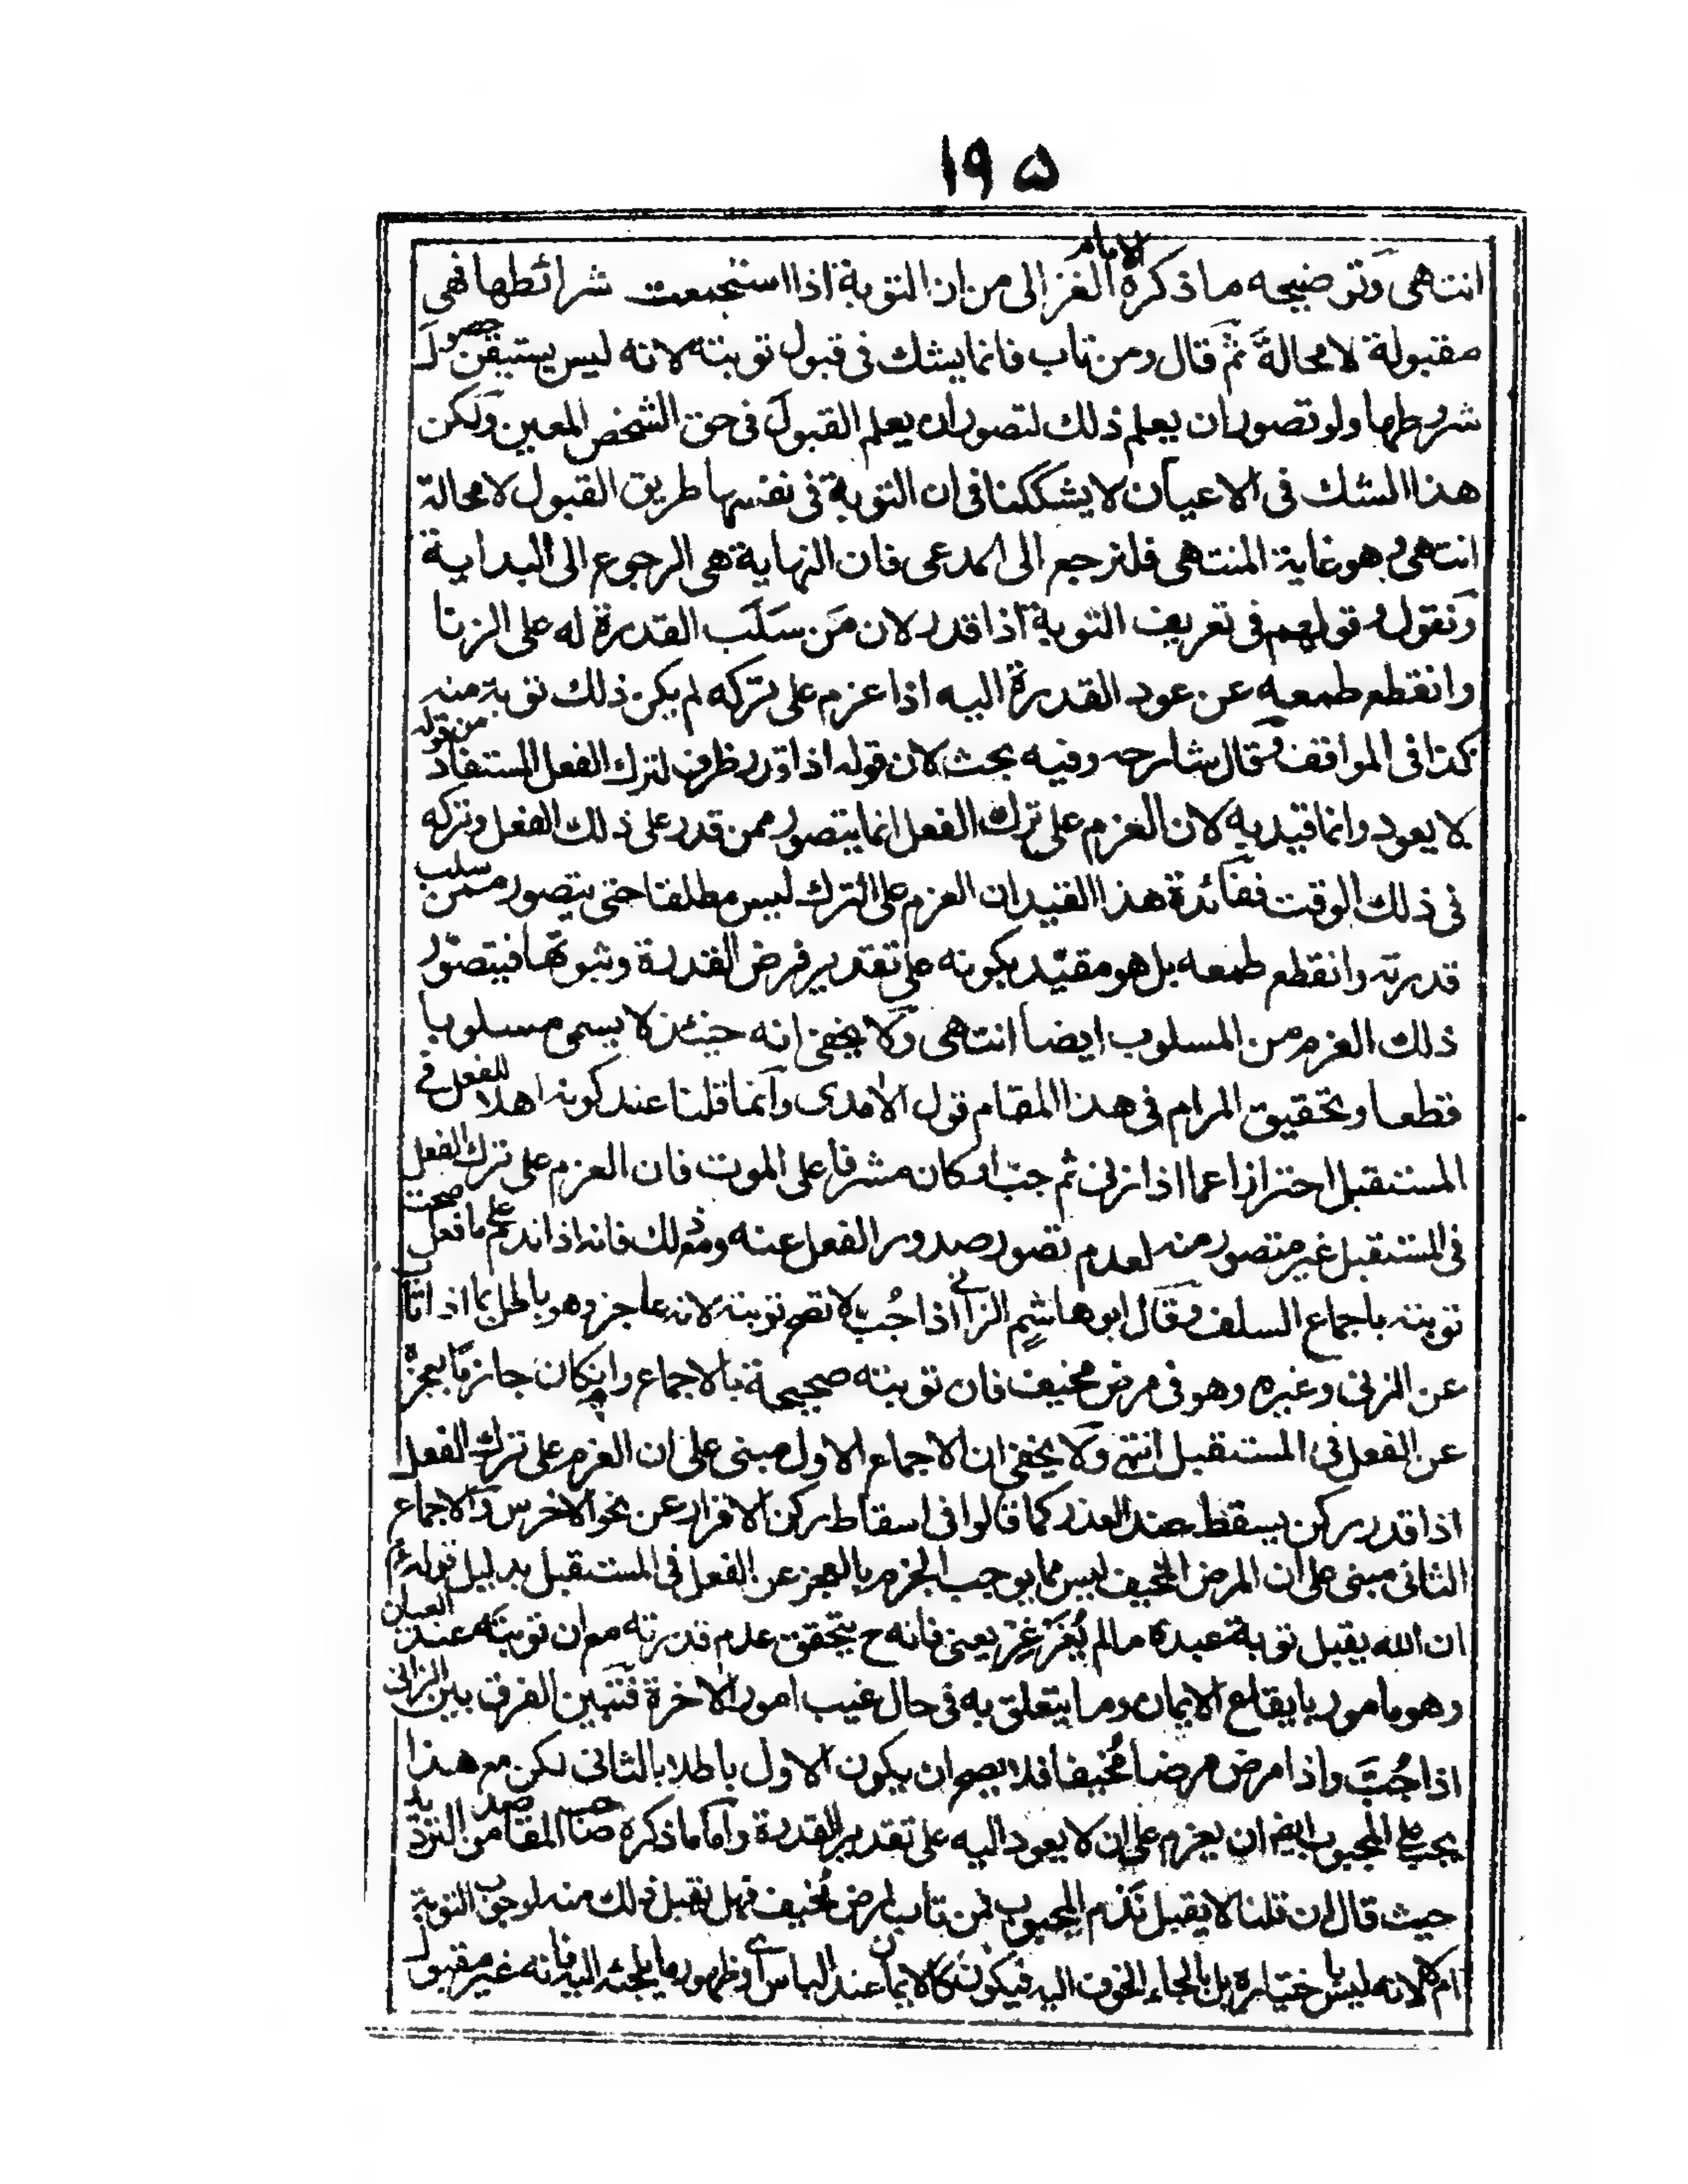 ١٩٥
انتهى وتوضيحه ما ذكره الامام الغزالى من ان التوبة اذا استجمعت شرائطها فهى
مقبولة لا محالة ثم قال ومن تاب فانما يشك فى قبول توبته لانه ليس يستيقن حصول
شروطها ولو تصور ان يعلم ذلك لتصور ان يعلم القبول فى حق الشخص المعين ولكن
هذا الشك فى الاعيان لا يشككنا فى ان التوبة فى نفسها طريق القبول لا محالة
انتهى وهو غاية المنتهى فلنرجع الى المدعى فان النهاية هى الرجوع الى البداية
ونقول قولهم فى تعريف التوبة اذا قدر لان من سلب القدرة له على الزنا
وانقطع طمعه عن عود القدرة اليه اذا عزم على تركه لم يكن ذلك توبة منه
كذا فى المواقف وقال شارحه وفيه بحث لان قوله اذا قدر ظرف لترك الفعل المستفاد من قوله
لا يعود وانما قيد به لان العزم على ترك الفعل انما يتصور ممن قدر على ذلك الفعل وتركه
فى ذلك الوقت ففائدة هذا القيد ان العزم على الترك ليس مطلقا حتى يتصور ممن سلب
قدرته وانقطع طمعه بل هو مقيد بكونه على تقدير فرض القدرة وثبوتها فيتصور
ذلك العزم من المسلوب ايضا انتهى ولا يخفى انه حينئذ لا يسمى مسلوبا
قطعا وتحقيق المرام فى هذا المقام قول الامدى وانما قلنا عند كونه اهلا للفعل فى
المستقبل احترازا عما اذا زنى ثم جب او كان مشرفا على الموت فان العزم على ترك الفعل
فى المستقبل غير متصور منه لعدم تصور صدور الفعل عنه ومع ذلك فانه اذا ندم على ما فعل صحت
توبته باجماع السلف وقال ابو هاشم الزانى اذا جُب لا تصح توبته لانه عاجز وهو باطل بما اذا تاب
عن الزنى وغيره وهو فى مرض مخيف فان توبته صحيحة بالاجماع وان كان جازما بعجزه
عن الفعل فى المستقبل انتهى ولا يخفى ان الاجماع الاول مبنى على ان العزم على ترك الفعل
اذا قدر ركن يسقط عند العذر كما قالوا فى اسقاط ركن الاقرار عن نحو الاخرس والاجماع
الثانى مبنى على ان المرض المخيف ليس مما يوجب الجزم بالعجز عن الفعل فى المستقبل بدليل قوله عم
ان الله يقبل توبة عبده ما لم يُغَرْغِرْ يعنى فانه ح يتحقق عدم قدرته مع ان توبته عند العيان
وهو مامور بايقاع الايمان وما يتعلق به فى حال غيب امور الاخرة فتبين الفرق بين الزانى
اذا جُبَّ واذا مرض مرضا مُخيفا فلا يصح ان يكون الاول باطلا بالثانى لكن مع هذا
يجب على المجبوب ايضم ان يعزم على ان لا يعود اليه على تقدير القدرة واما ما ذكره صاحب المقاصد من الترديد
حيث قال ان قلنا لا يقبل ندم المجبوب فمن تاب لمرض مُخيف فهل تقبل ذلك منه لوجوب التوبة
ام لا لانه ليس باختياره بل بالجاء الخوف اليه فيكون كالايمان عند الباس اى ظهور ما يلجئه اليه فانه غير مقبول